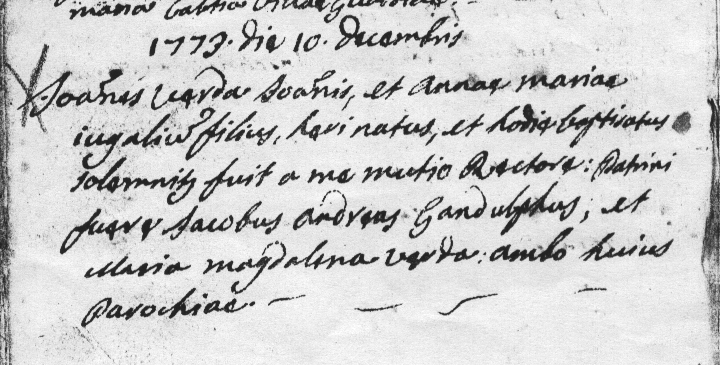 maria
1773. die 10. decembris
Joañes Verda Joañis, et Annae mariae
iugaliũ filius, heri natus, et hodie baptisatus
solemnitr fuit a me mutio Rectore: Patrini
fuere Jacobus Andreas Gandulphus; et
Maria magdalena verda: ambo huius
Parochiae. —